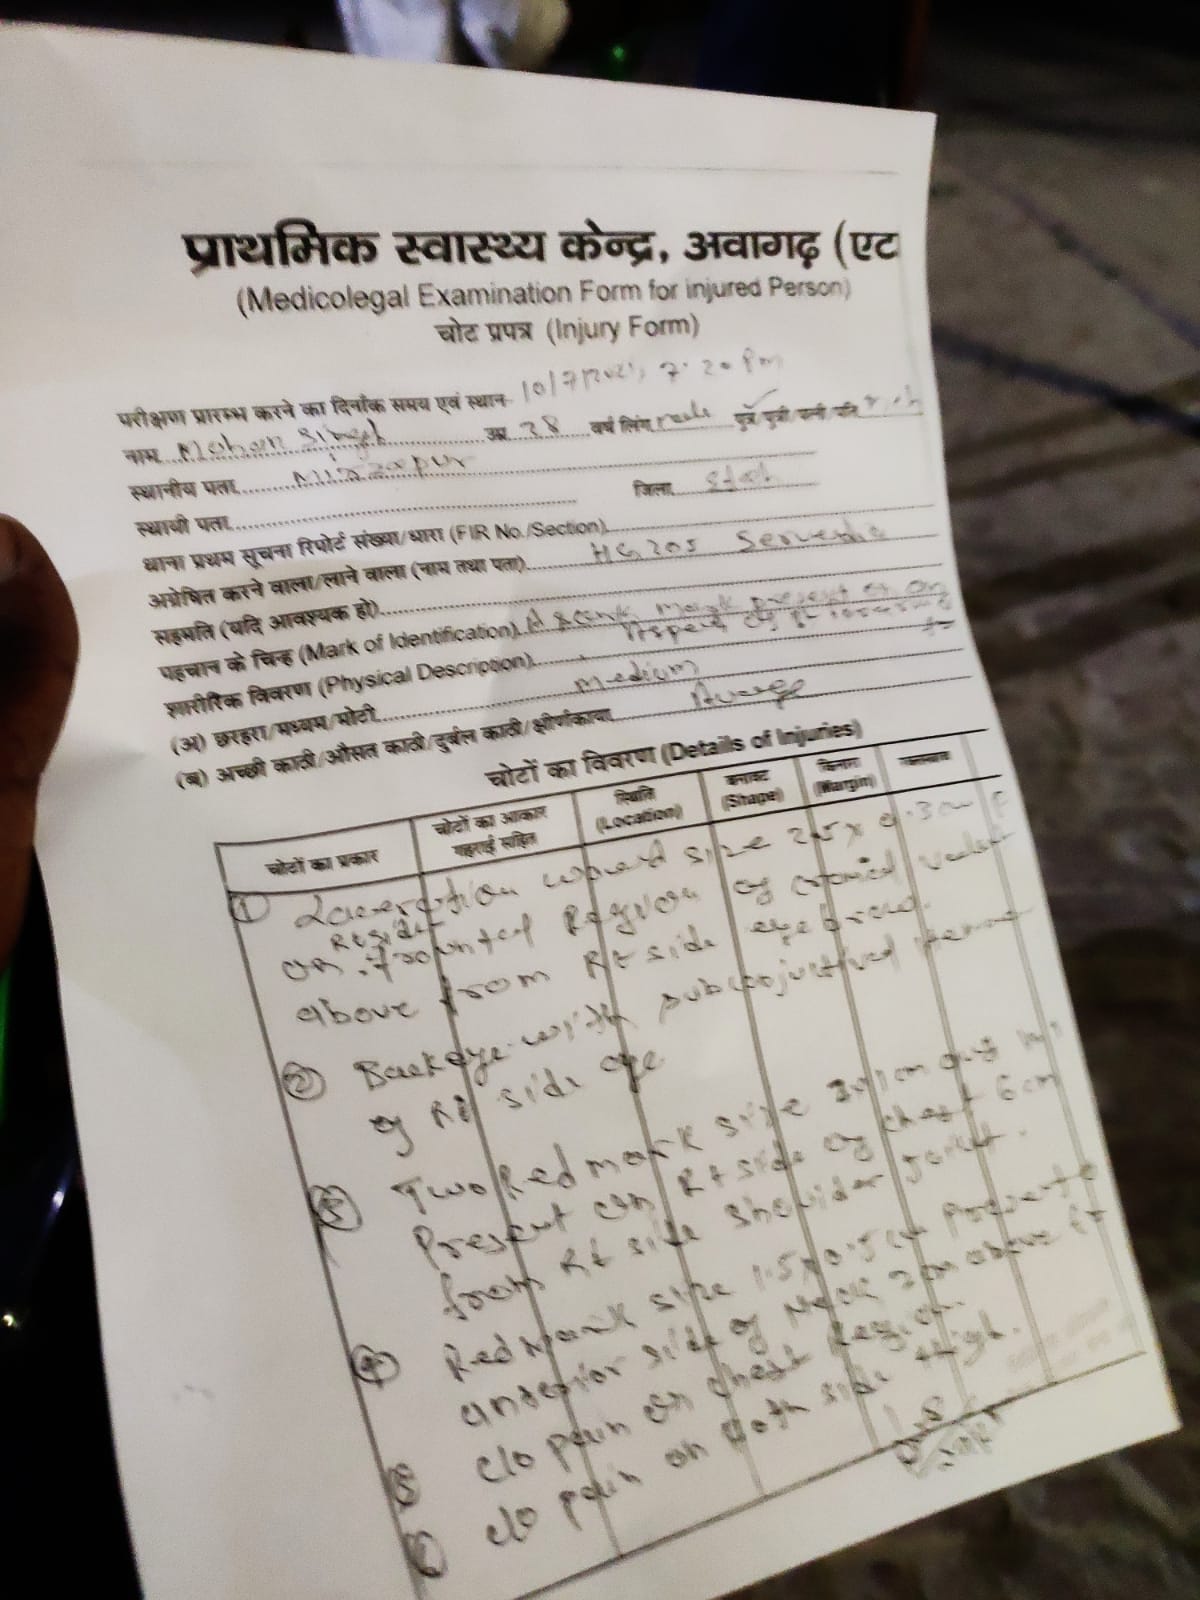 प्राथमिक स्वास्थ्य केन्द्र, अवागढ़ (एट
(Medicolegal Examination Form for injured Person)
चोट प्रपत्र (Injury Form)
परीक्षण प्रारम्भ करने का दिनाँक समय एवं स्थान 10/7/2021, 7:20 Pm
नाम Mohan Singh उम्र 28 वर्ष लिंग male पुत्र/पुत्री/पत्नी/पति
स्थानीय पता Mirzapur
स्थायी पता जिला Etah
थाना प्रथम सूचना रिपोर्ट संख्या/धारा (FIR No./Section)
अग्रेषित करने वाला/लाने वाला (नाम तथा पता) HG 205
सहमति (यदि आवश्यक हो)
पहचान के चिन्ह (Mark of Identification) A mark present on
शारीरिक विवरण (Physical Description)
(अ) छरहरा/मध्यम/मोटी medium
(ब) अच्छी काठी/औसत काठी/दुर्बल काठी/क्षीणकाया
चोटों का विवरण (Details of Injuries)
चोटों का प्रकार चोटों का आकार गहराई सहित स्थिति (Location) बनावट (Shape) किनारा (Margin)
① wound size 2.5 x 0.3cm
Rt side
on Region of
above from Rt side eyebrow.
② with
of Rt side eye
③ Two Red mark size
Present on Rt side of chest 6cm
from Rt side shoulder joint.
④ Red Mark size 1.5x0.5cm present
anterior side of Neck 2cm above
⑤ c/o pain on chest Region.
⑥ c/o pain on both side thigh.